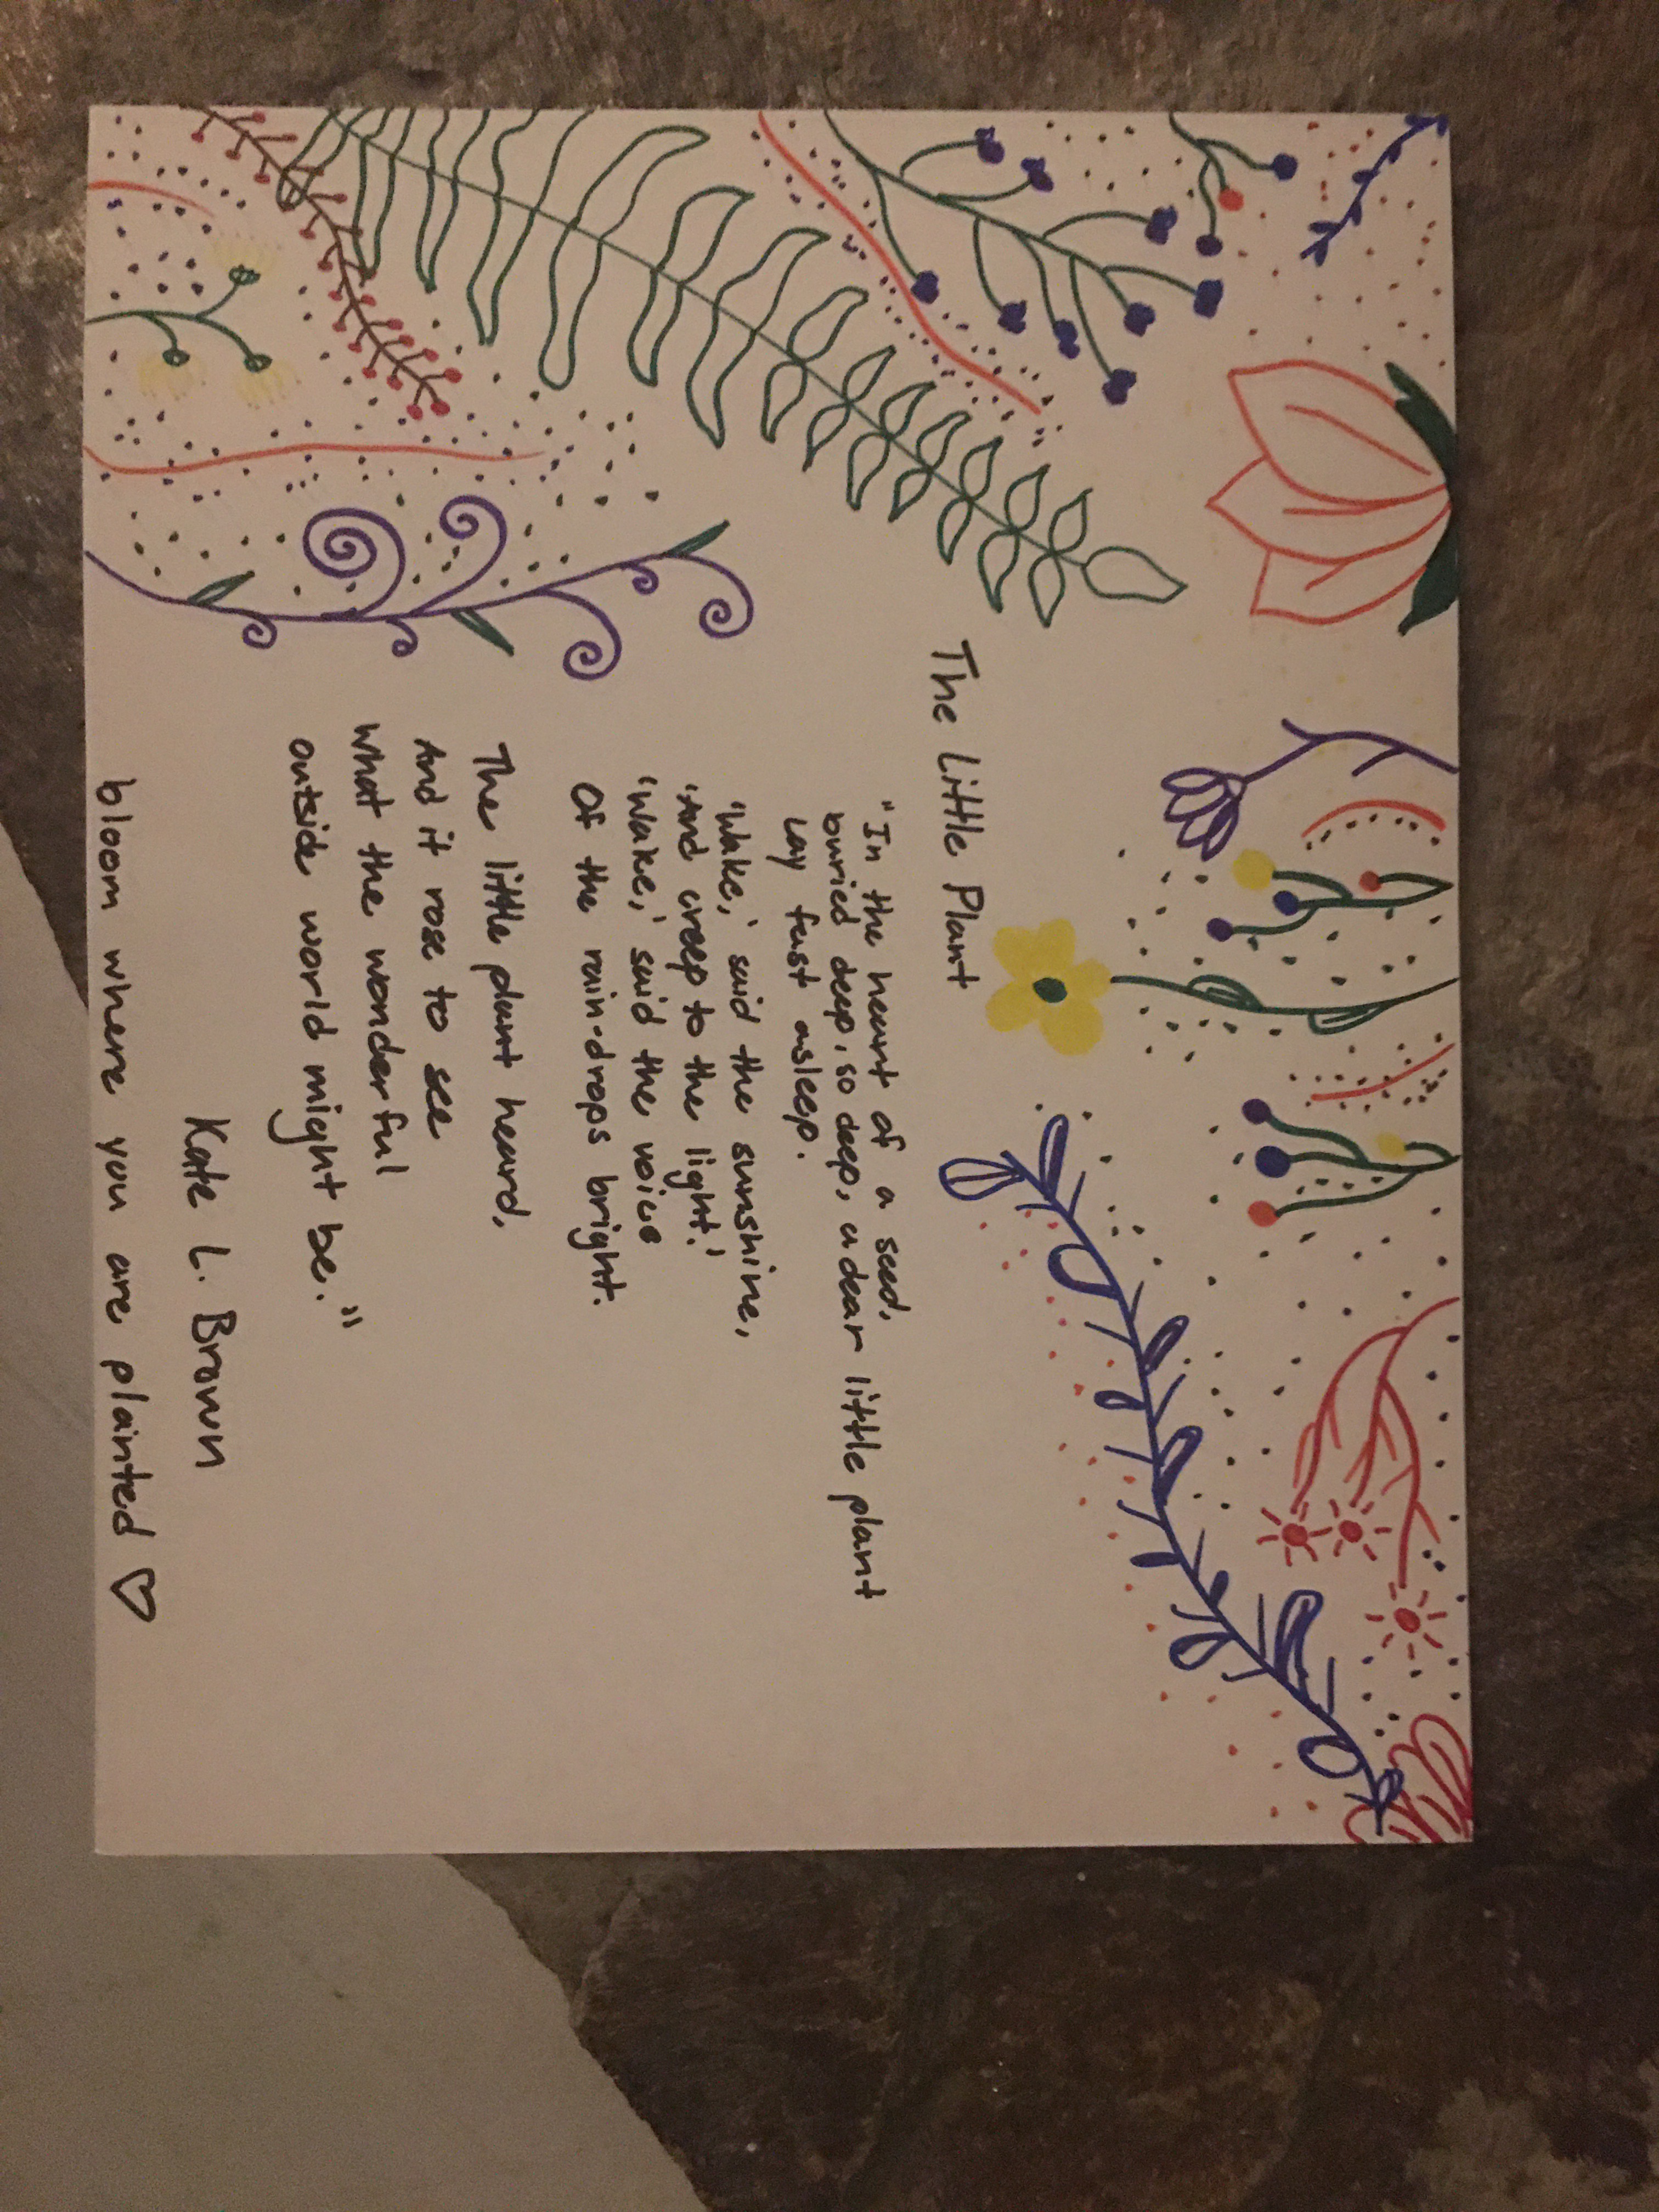 The Little Plant
"In the heart of a seed,
buried deep, so deep, a dear little plant
lay fast asleep.
"Wake,' said the sunshine,
"And creep to the light.'
"Wake,' said the voice
Of the rain-drops bright.
The little plant heard,
And it rose to see
what the wonderful
outside world might be."
Kate L. Brown
bloom where you are plainted ♡